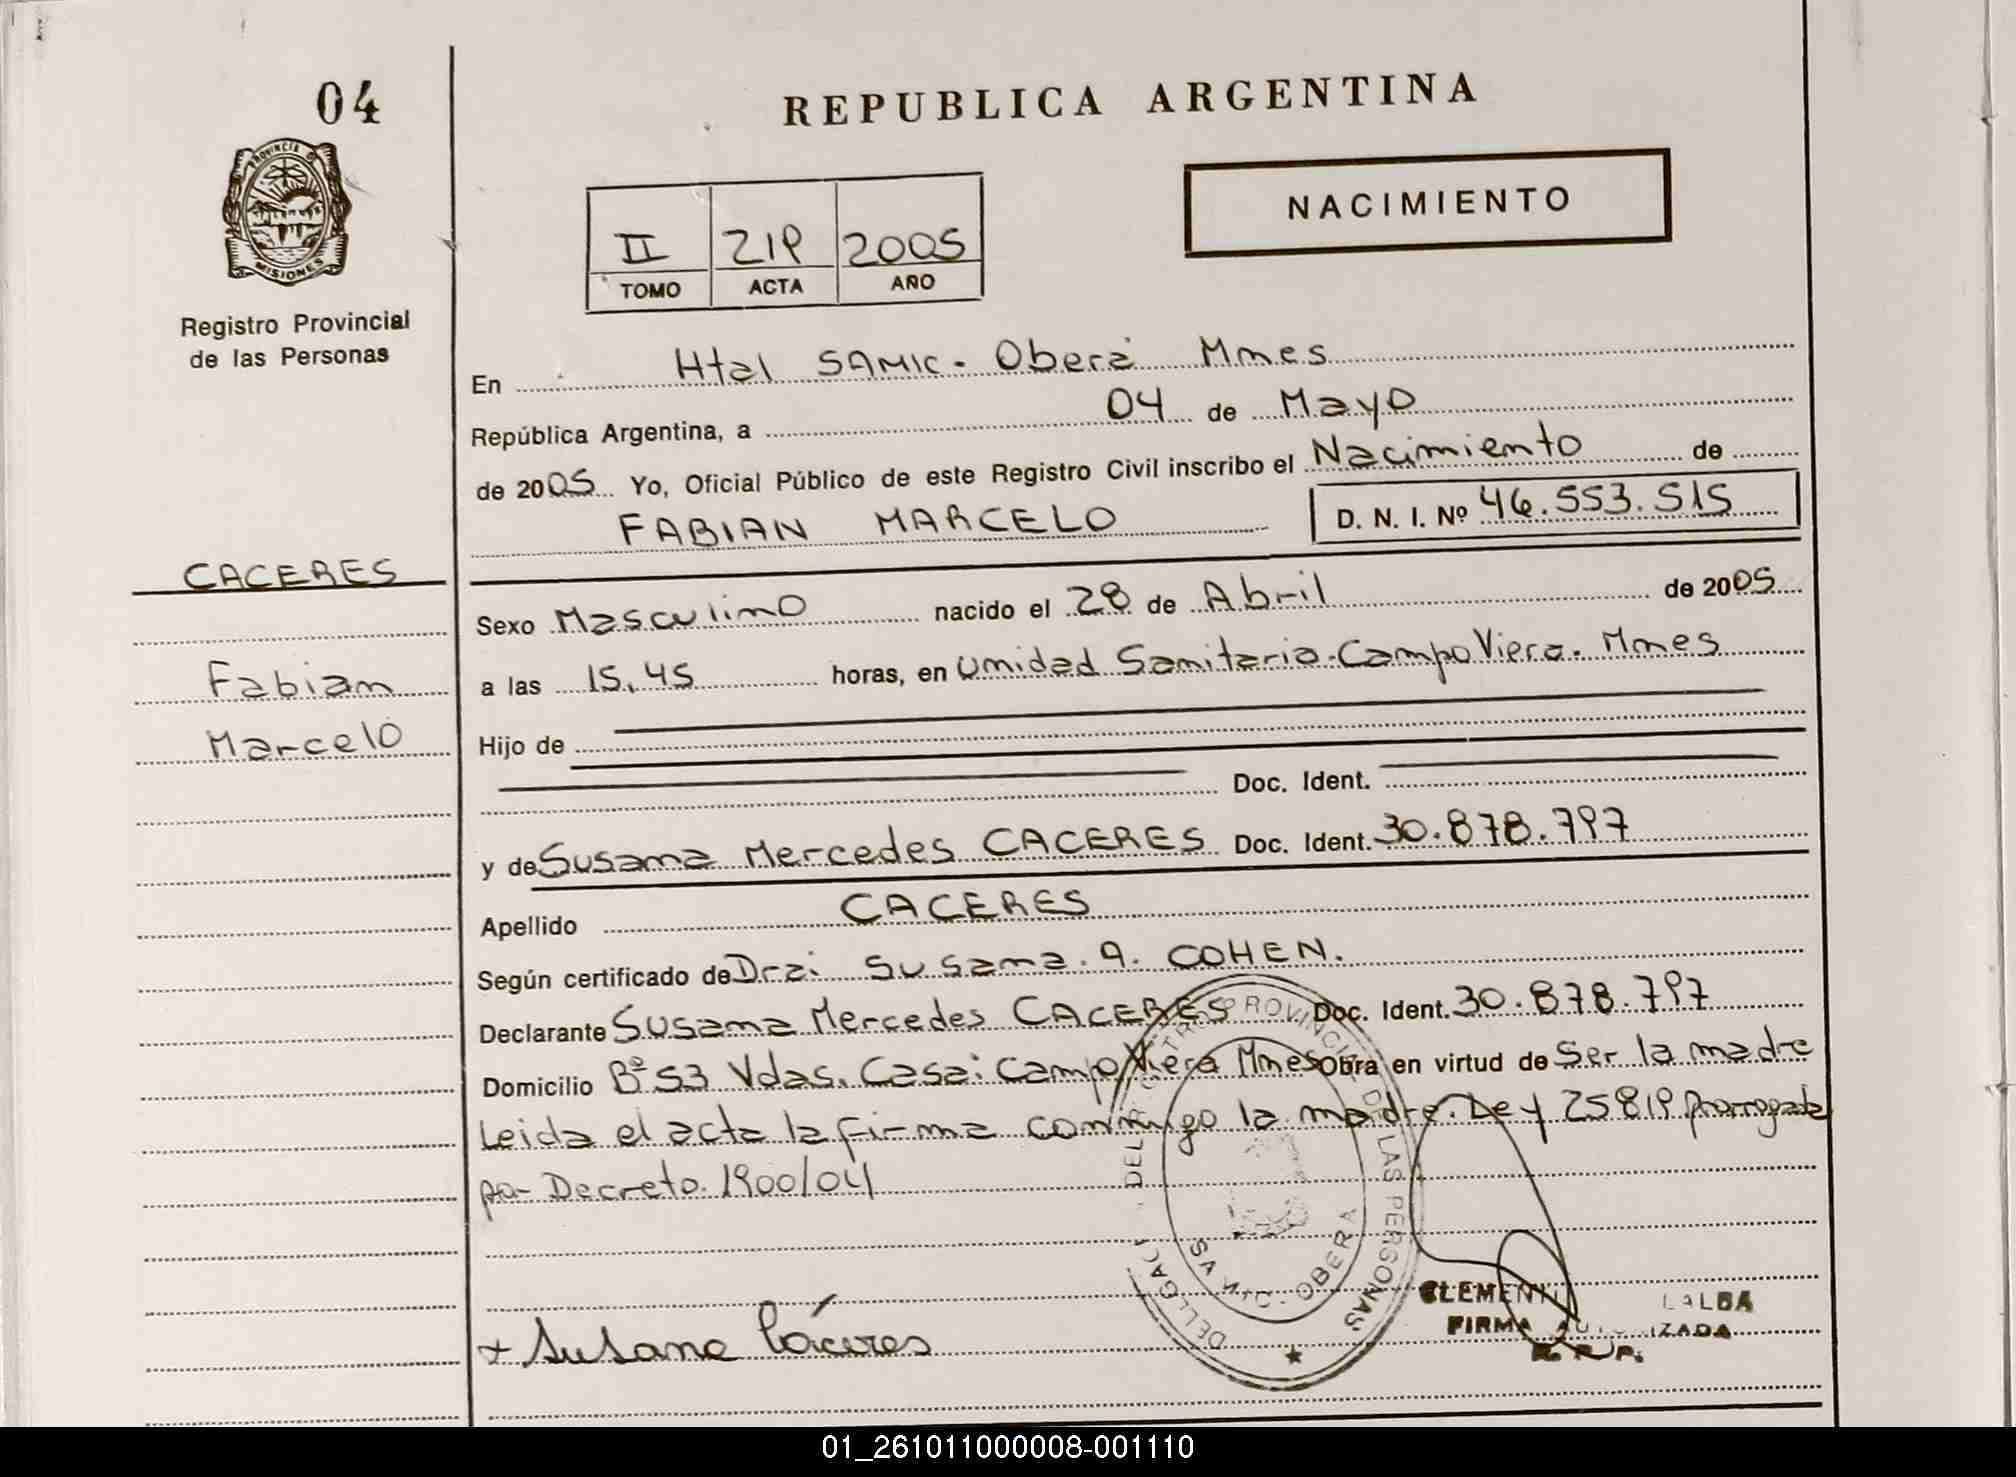 04
REPUBLICA ARGENTINA
PROVINCIA DE
MISIONES
Registro Provincial
de las Personas
NACIMIENTO
II 219 2005
TOMO ACTA AÑO
En Htal SAMIC. Oberá Mnes
República Argentina, a 04 de Mayo
de 2005 Yo, Oficial Público de este Registro Civil inscribo el Nacimiento de
FABIAN MARCELO D. N. I. Nº 46.553.515
CACERES
Fabian
Marcelo
Sexo Masculino nacido el 28 de Abril de 2005
a las 15,45 horas, en Unidad Sanitaria. Campo Viera. Mnes
Hijo de
Doc. Ident.
y de Susana Mercedes CACERES Doc. Ident. 30.878.797
Apellido CACERES
Según certificado de Dra: Susana. A. COHEN.
Declarante Susana Mercedes CACERES Doc. Ident. 30.878.797
Domicilio Bº 53 Vdas. Casa: Campo Viera Mnes Obra en virtud de Ser la madre
Leida el acta la firma conmigo la madre. Ley 25819 prorrogada
por Decreto. 1900/04
+ Susana Cáceres
DEL REGISTRO PROVINCIAL DE LAS PERSONAS
OBERA
FIRMA AUTORIZADA
R. P. P.
01_261011000008-001110